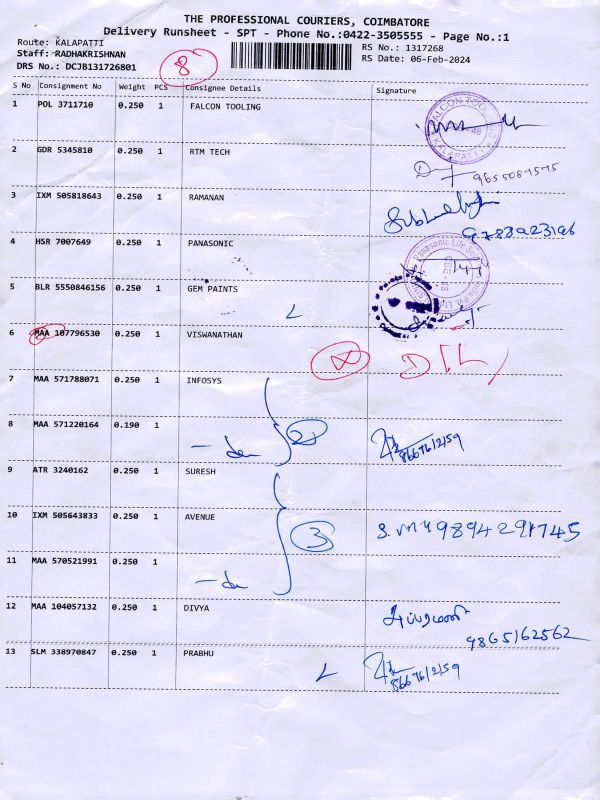 THE PROFESSIONAL COURIERS, COIMBATORE
Delivery Runsheet - SPT - Phone No.:0422-3505555 - Page No.:1
Route: KALAPATTI RS No.: 1317268
Staff: RADHAKRISHNAN RS Date: 06-Feb-2024
DRS No.: DCJB131726801 8
S No Consignment No Weight PCS Consignee Details Signature
1 POL 3711710 0.250 1 FALCON TOOLING
2 GDR 5345810 0.250 1 RTM TECH
3 IXM 505818643 0.250 1 RAMANAN
4 HSR 7007649 0.250 1 PANASONIC
5 BLR 5550846156 0.250 1 GEM PAINTS
6 MAA 107796530 0.250 1 VISWANATHAN
7 MAA 571788071 0.250 1 INFOSYS
8 MAA 571220164 0.190 1
9 ATR 3240162 0.250 1 SURESH
10 IXM 505643833 0.250 1 AVENUE 3 9894291745
11 MAA 570521991 0.250 1
12 MAA 104057132 0.250 1 DIVYA
9865162562
13 SLM 338970847 0.250 1 PRABHU